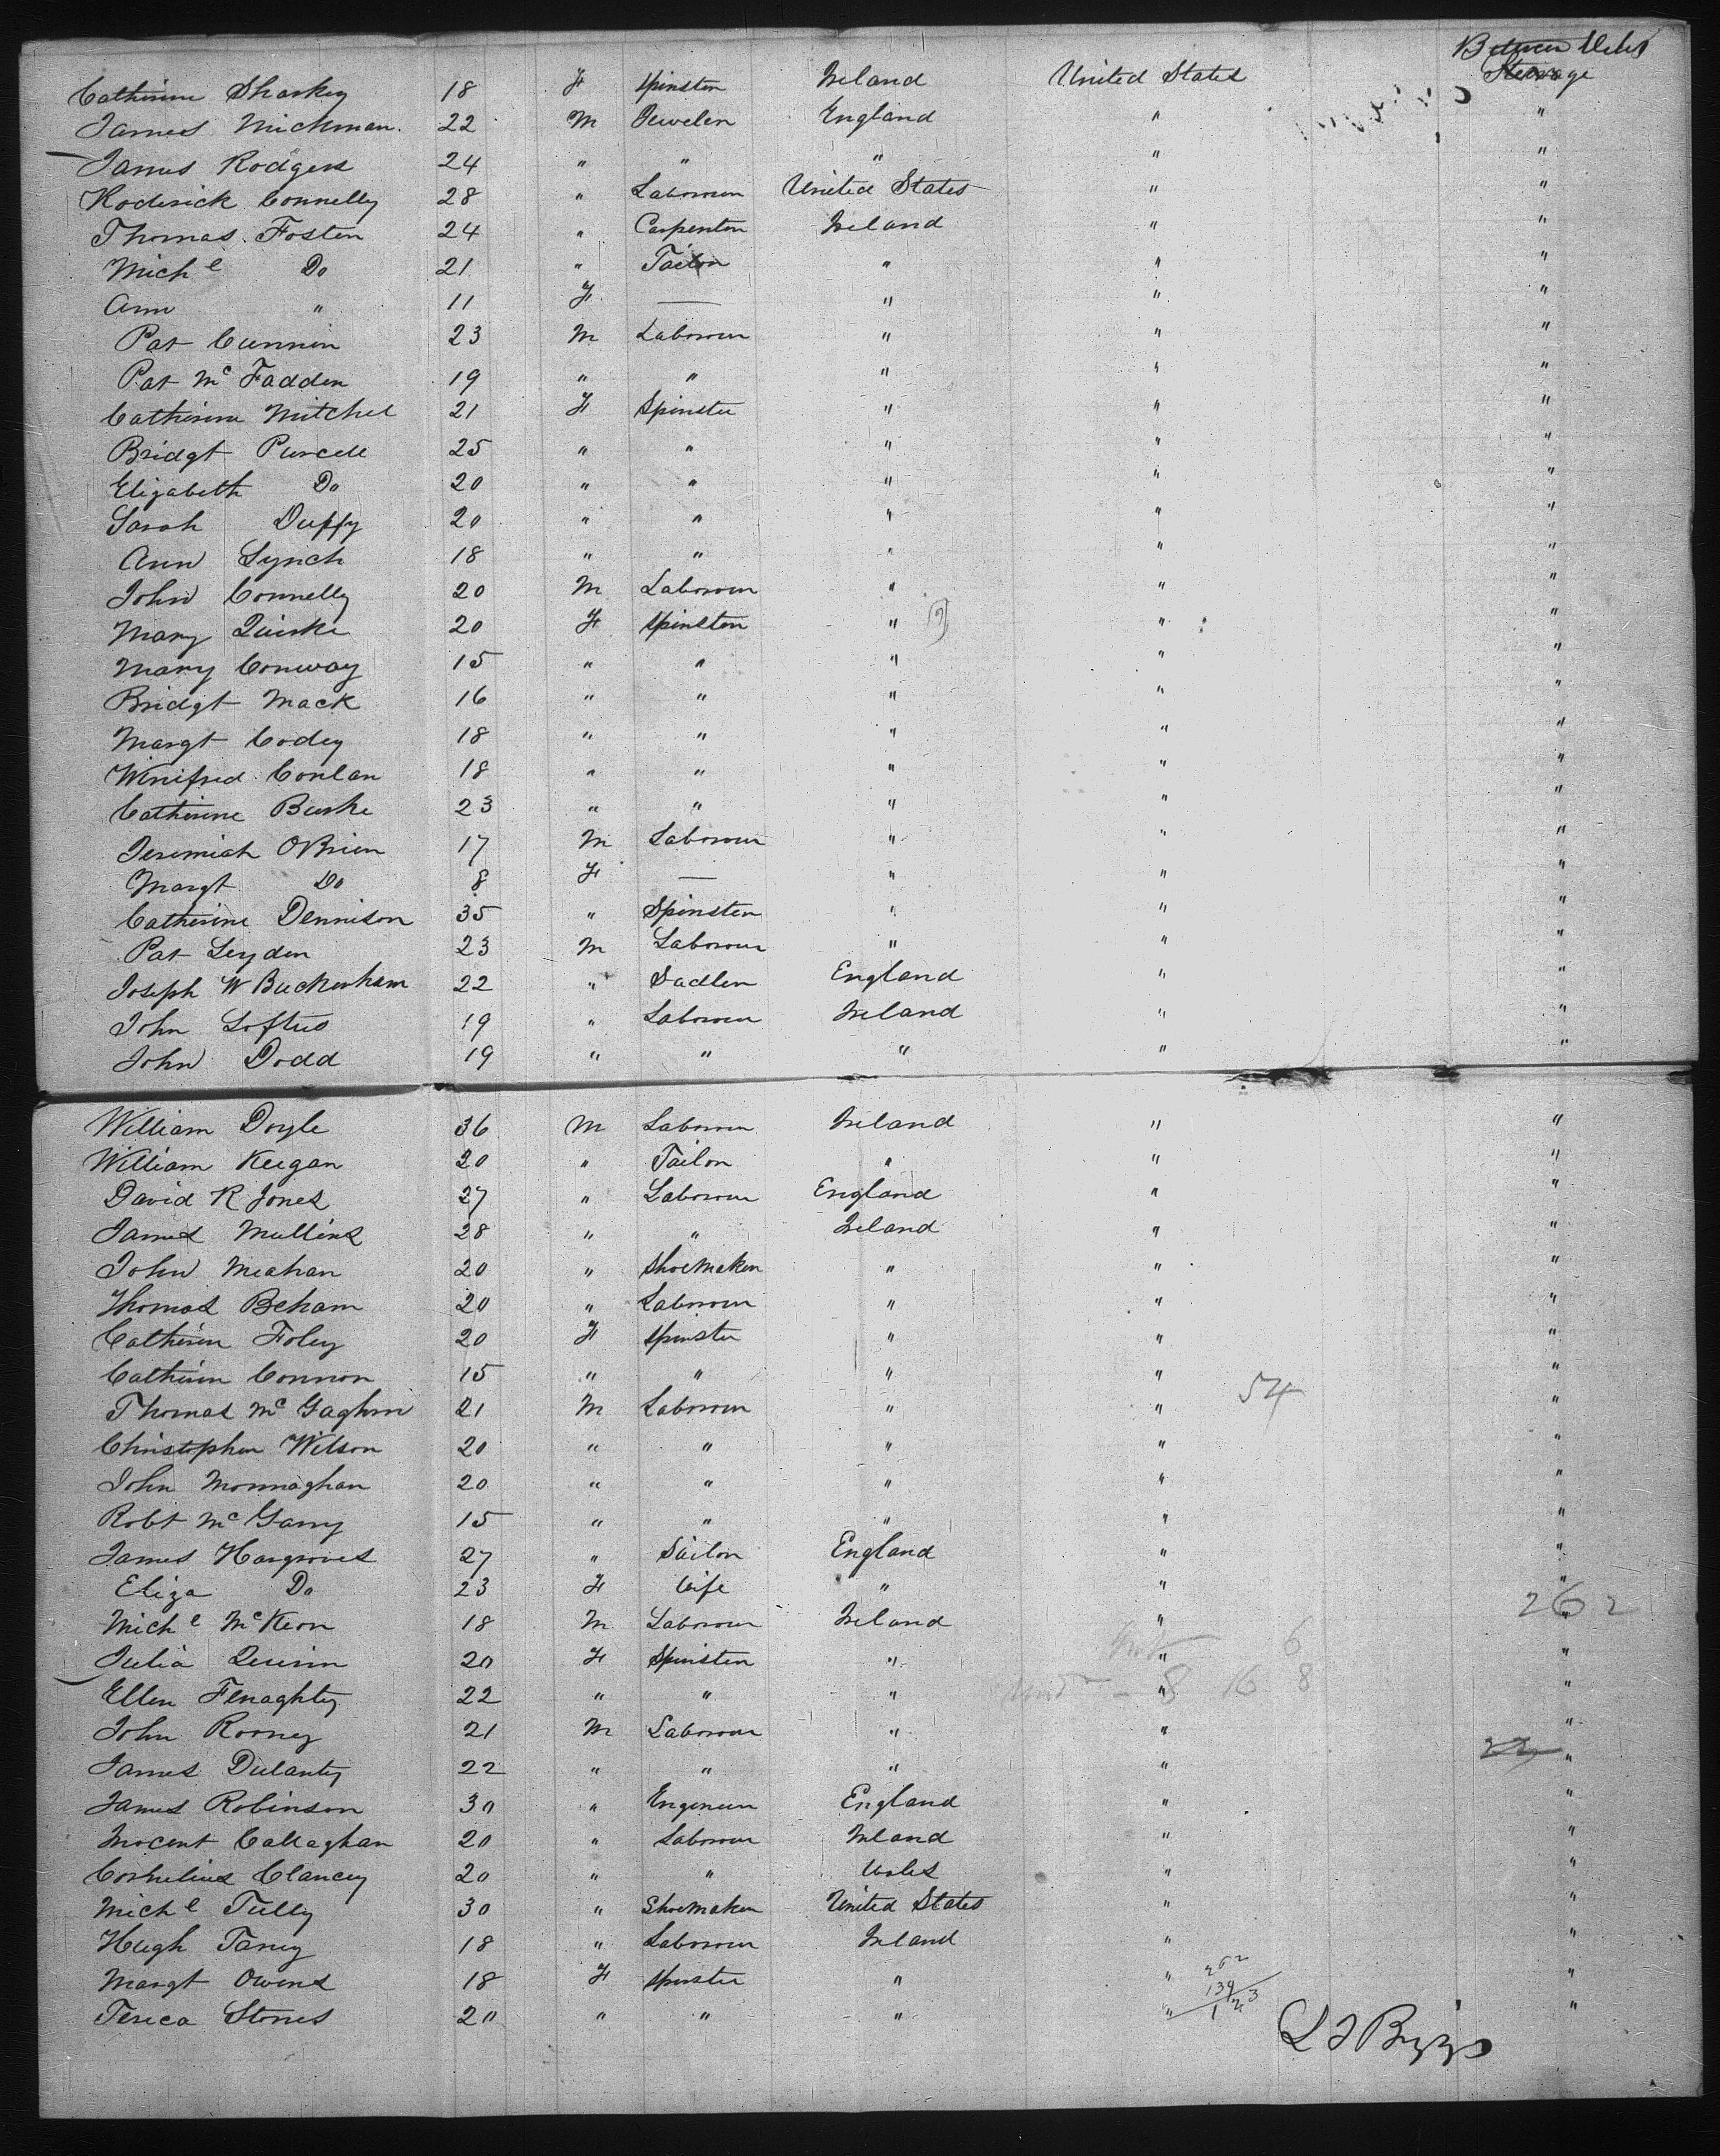 Between Decks
Catherine Sharkey 18 F Spinster Ireland United States Steerage
James Hickman 22 M Jeweler England " "
James Rodgers 24 " " " " "
Roderick Connelly 28 " Labourer United States " "
Thomas Foster 24 " Carpenter Ireland " "
Michl Do 21 " Tailor " " "
Ann " 11 F — " " "
Pat Cunnin 23 M Labourer " " "
Pat McFadden 19 " " " " "
Catherine Mitchel 21 F Spinster " " "
Bridgt Purcell 25 " " " " "
Elizabeth Do 20 " " " " "
Sarah Duffy 20 " " " " "
Ann Lynch 18 " " " " "
John Connelly 20 M Labourer " " "
Mary Quirke 20 F Spinster " " "
Mary Conway 15 " " " " "
Bridgt Mack 16 " " " " "
Margt Codey 18 " " " " "
Winifred Conlan 18 " " " " "
Catherine Burke 23 " " " " "
Jeremiah OBrien 17 M Labourer " " "
Margt Do 8 F — " " "
Catherine Dennison 35 " Spinster " " "
Pat Leyden 23 M Labourer " " "
Joseph W Buckenham 22 " Sadler England " "
John Loftus 19 " Labourer Ireland " "
John Dodd 19 " " " " "
William Doyle 36 M Labourer Ireland " "
William Keegan 20 " Tailor " " "
David R Jones 27 " Labourer England " "
James Mullins 28 " " Ireland " "
John Meahan 20 " Shoemaker " " "
Thomas Beham 20 " Labourer " " "
Catherin Foley 20 F Spinster " " "
Catherin Connor 15 " " " " "
Thomas McGaghrn 21 M Labourer " " 54 "
Christopher Wilson 20 " " " " "
John Monnaghan 20 " " " " "
Robt McGarry 15 " " " " "
James Hargroves 27 " Sailor England " "
Eliza Do 23 F Wife " " "
Michl McKeon 18 M Labourer Ireland " 262 "
Julia Quinn 20 F Spinster " " 6 "
Ellen Fenaghty 22 " " " " 8 16 8 "
John Rooney 21 M Labourer " " "
James Dulanty 22 " " " " "
James Robinson 30 " Engineer England " "
Inocent Callaghan 20 " Labourer Ireland " "
Cornelius Clancey 20 " " Wales " "
Michl Tully 30 " Shoemaker United States " "
Hugh Taney 18 " Labourer Ireland " "
Margt Owens 18 F Spinster " " "
Tereca Stones 20 " " " " "
262
139
123